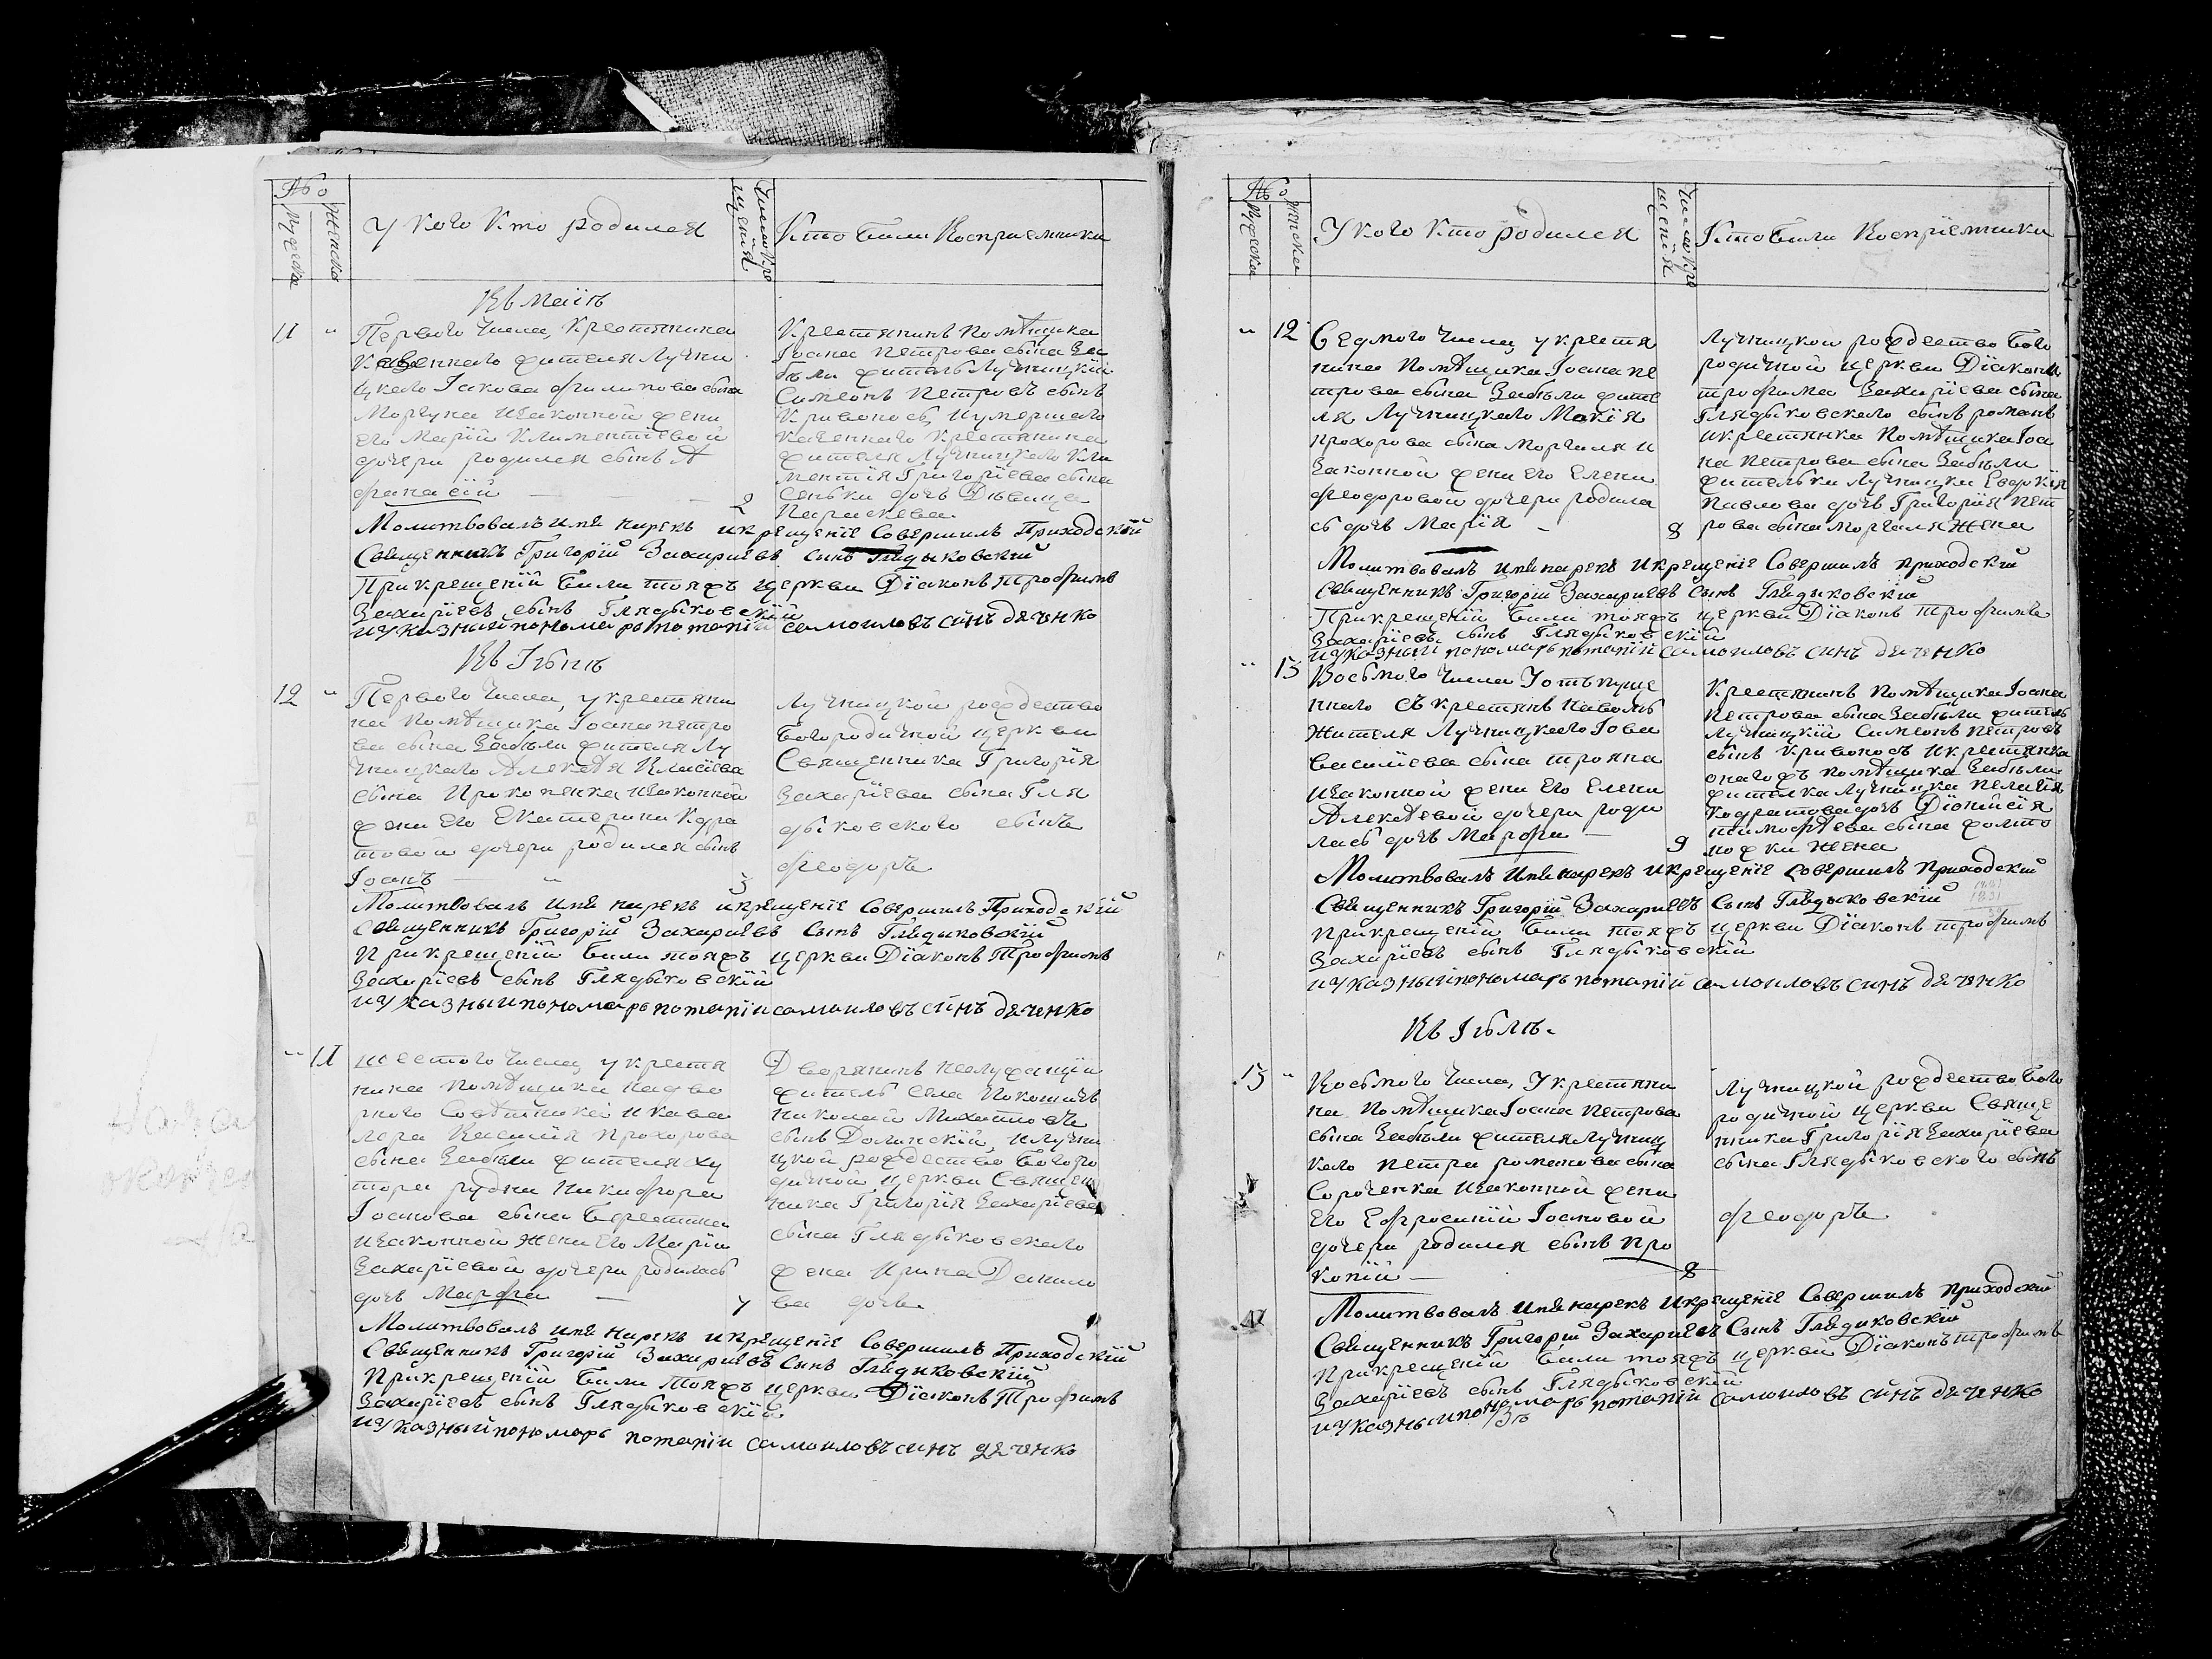 №
Мужеска
Женска
У кого кто родился
Число кре
щенія
Кто были Восприемники
Въ Маіѣ
11 "
Перваго числа, Крестянина
Казеннаго жителя Лучни
цкаго Іакова Филипова сына
Моргуна изаконной жени
Его Маріи Климентіевой
дочери родился сынъ А
фанасій — — —
2
Крестянинъ помѣщика
Іоана Петрова сына За
бѣли житель Лучницкій
Симеонъ Петровъ сынъ
Кривоносъ, иумершаго
казеннаго крестянина
жителя Лучницкаго Кли
ментія Григоріева сына
Сенки дочь Дѣвица
Параскева.
Молитвовалъ имя нарекъ икрещеніе Совершилъ Приходскій
Священникъ Григорій Захаріевъ сынъ Глядыковскій
Прикрещеніи были тояжъ церкви Діаконъ Трофимъ
Захаріевъ сынъ Глядыковскій
иуказный пономарь потапій самоиловъ синъ дяченко
Въ Іюнѣ
12 "
Перваго числа, укрестяни
на помѣщика Іоана петро
ва сына Забѣли жителя Лу
чницкаго Алексѣя Елисіева
сына Прокопенка изаконной
жени Его Екатерини Кодра
товой дочери родился сынъ
Іоанъ — "
3
Лучницкой рождество
Богородичной церкви
Священника Григорія
Захаріева сына Гля
дыковского сынъ
Феодоръ
Молитвовалъ имя нарекъ икрещеніе Совершилъ Приходскій
Священникъ Григорій Захаріевъ Сынъ Глядыковскій
Прикрещеніи били тояжъ церкви Діаконъ Трофимъ
Захаріевъ сынъ Глядыковскій
иуказный пономарь потапій самоиловъ синъ дяченко
" 11
Шестого числа, укрестя
нина помѣщика надво
рного Совѣтника и кава
лера Василія Прохорова
сына Забѣли жителя ху
тора рудни Никифора
Іоанова сына
изаконной Жени Его Маріи
Захаріевой дочери родилась
дочь Марфа —
7
Дворянинъ неслужащій
житель села Покошичъ
Николай Михайловъ
сынъ Долинскій, и Лучни
цкой рождество Богоро
дичной церкви Священ
ника Григорія Захаріева
сына Глядыковскаго
жена Ирина Данило
ва дочь.
Молитвовалъ имя нарекъ икрещеніе Совершилъ Приходскій
Священникъ Григорій Захаріевъ Сынъ Глядыковскій
Прикрещеніи били тояжъ церкви Діаконъ Трофимъ
Захаріевъ сынъ Глядыковскій
иуказный пономарь потапіи самоиловъ синъ дяченко
№
Мужеска
Женска
У кого кто родился
Число кре
щенія
Кто были Воспріемники
" 12
Седмого числа, укрестя
нина помѣщика Іоана пе
трова сына Забѣли жите
ля Лучницкаго Мокія
прохорова сына Моргаля и
Законной жени его Елени
Феодоровой дочери родила
сь дочь Марія —
8
Лучницкой рождество Бого
родичной церкви Діакона
трофима Захаріева сына
Глядыковскаго сынъ романъ
икрестянка помѣщика Іоа
на петрова сына Забѣли
жителька Лучницка Евдокія
Павлова дочь Григорія Пет
рова сына моргаля жена
Молитвовалъ имя нарекъ икрещеніе Совершилъ приходскій
Священникъ Григорій Захаріевъ Сынъ Глядыковскій
Прикрещеніи били тояжъ церкви Діаконъ Трофимъ
Захаріевъ сынъ Глядыковскій
иуказный пономарь потапій самоиловъ синъ дяченко
" 13
Восьмого числа Уотъпуще
ннаго съ крестянъ наволю
жителя Лучницкаго Іова
Василіева сына трояна
изаконной жени его Елени
Алексѣевой дочери роди
лась дочь Марфа —
9
Крестянинъ помѣщика Іоана
Петрова сына Забѣли житель
Лучницкій Симеонъ Петровъ
сынъ Кривоносъ икрестянка
онагожъ помѣщика Забѣли
жителька Лучницка Пелагія
Кодратова дочь Діонисія
тимофѣева сына
жена
Молитвовалъ имя нарекъ икрещеніе Совершилъ приходскій
Священникъ Григорій Захаріевъ Сынъ Глядыковскій
Прикрещеніи били тояжъ церкви Діаконъ трофимъ
Захаріевъ сынъ Глядыковскій
иуказный пономарь потапій самоиловъ синъ дяченко
Въ Іюлѣ.
13 "
Восьмого числа, Укрестяни
на помѣщика Іоана Петрова
сына Забѣли жителя Лучниц
каго Петра романова сына
Сороченка изаконной жени
Его Ефросиніи Іоановой
дочери родился сынъ Про
копій —
8
Лучницкой рождество Бого
родичной церкви Свяще
нника Григорія Захаріева
сына Глядыковского сынъ
Феодоръ
Молитвовалъ имя нарекъ икрещеніе Совершилъ приходскій
Священникъ Григорій Захаріевъ Сынъ Глядыковскій
Прикрещеніи били тояжъ церкви Діаконъ трофимъ
Захаріевъ сынъ Глядыковскій
иуказный пономарь потапій самоиловъ синъ дяченко